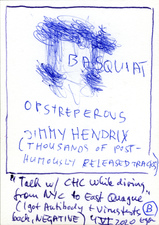 BASQUIAT
OBSTREPEROUS
JIMMY HENDRIX
(THOUSANDS OF POST-
HUMOUSLY RELEASED TRACKS)
"Talk w/ CHC while driving
from NYC to East Quogue
(I got Antibody + Virus tests
back, NEGATIVE) 4 VI 2020
B